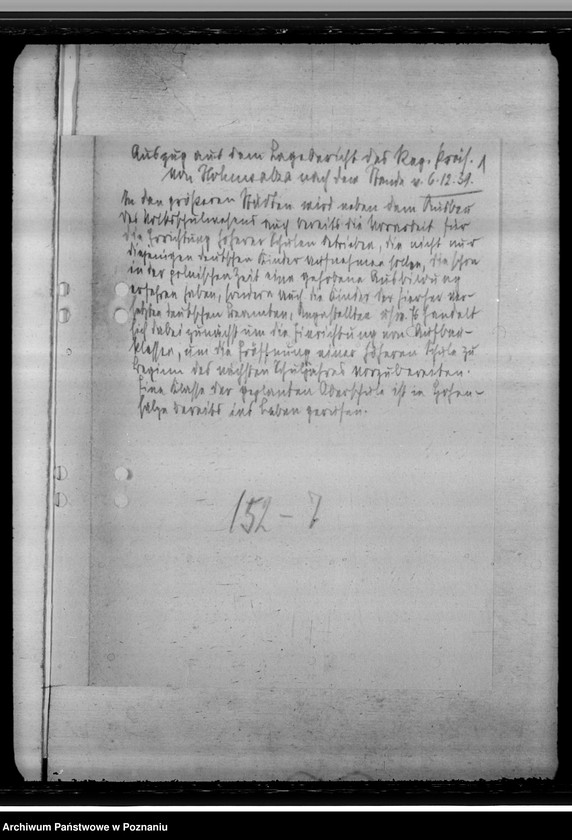 Auszug aus dem Lagebericht des Reg. Präs. 1
von Hohensalza nach dem Stande v. 6.12.39.
In den größeren Städten wird neben dem Ausbau
des Volksschulwesens auch bereits die Vorarbeit für
die Errichtung höherer Schulen betrieben, die nicht nur
diejenigen deutschen Kinder aufnehmen sollen, die schon
in der polnischen Zeit eine gehobene Ausbildung
erfahren haben, sondern auch die Kinder der hierher ver-
setzten deutschen Beamten, Angestellten usw. Es handelt
sich dabei zunächst um die Einrichtung von Aufbau-
klassen, um die Eröffnung einer höheren Schule zu
Beginn des nächsten Schuljahres vorzubereiten.
Eine Klasse der geplanten Oberschule ist in Hohen-
salza bereits ins Leben gerufen.
152 - 7
Archiwum Państwowe w Poznaniu